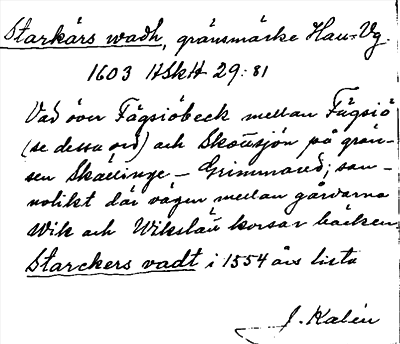 Starkärs wadh, gränsmärke Hau=Vg.
1603 HSkH 29:81
Vad över Fägsiöbeck mellan Fägsiö
(se dessa ord) och Skäusjön på grän-
sen Skällinge - Grimmared; san-
nolikt där vägen mellan gårdarna
Wik och Wikslätt korsar bäcken.
Starckers vadt i 1554 års lista
J. Kalén